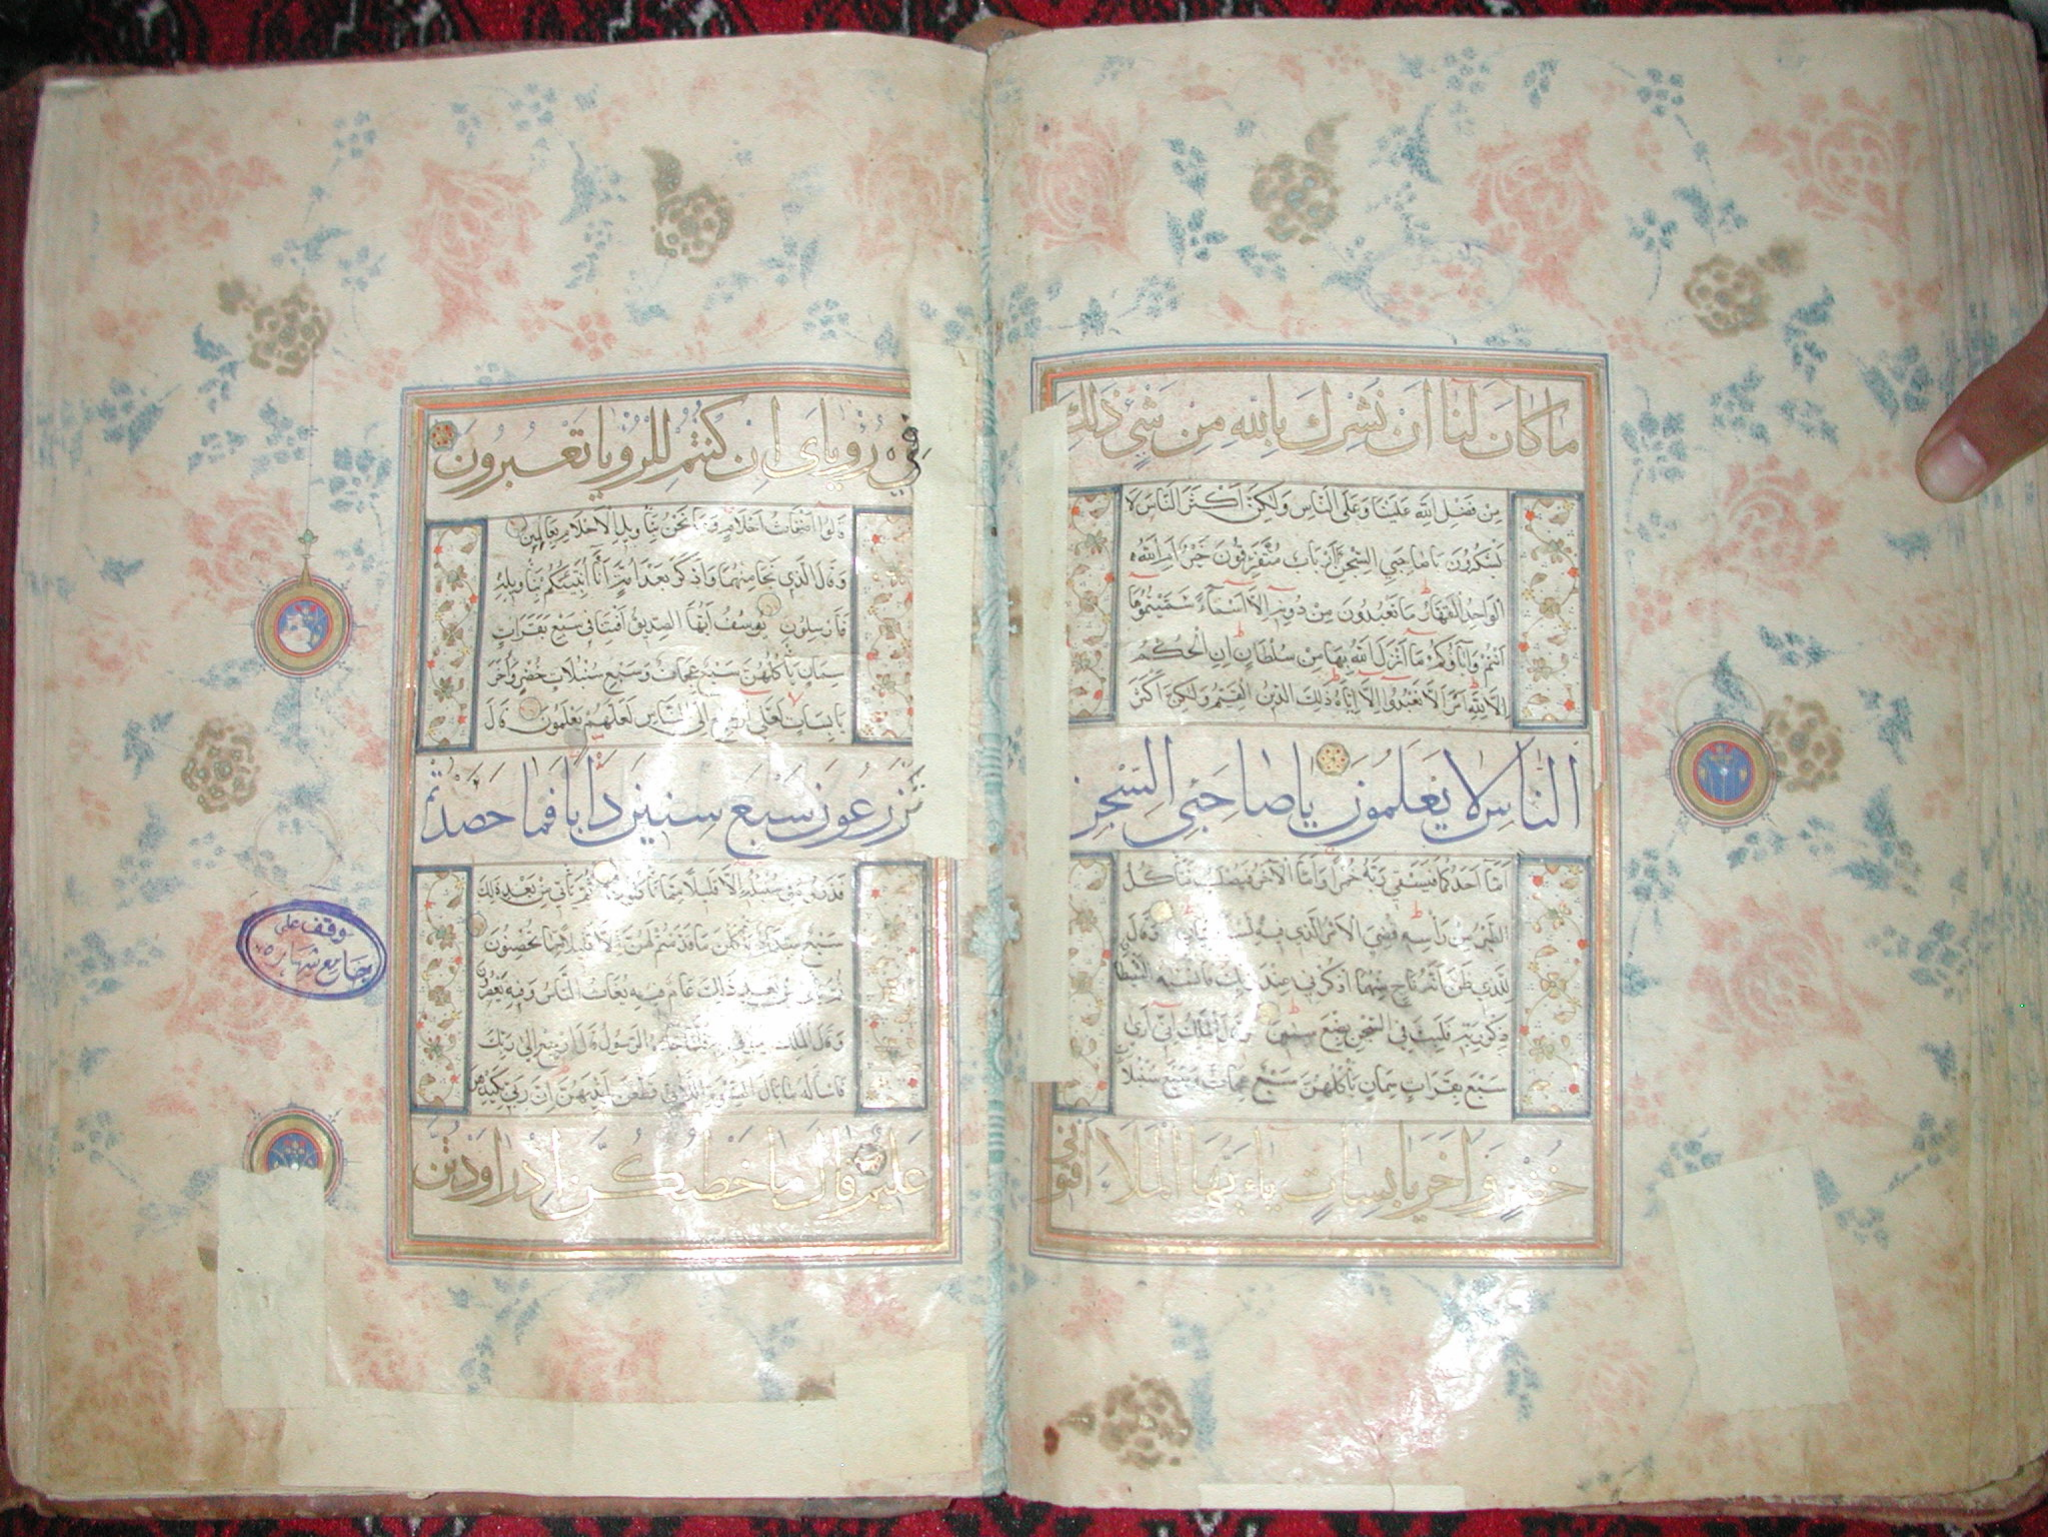 ما كان لنا ان نشرك بالله من شيء ذلك
من فضل الله علينا وعلى الناس ولكن اكثر الناس لا
يشكرون يا صاحبي السجن أارباب متفرقون خير ام الله
الواحد القهار ما تعبدون من دونه الا اسماء سميتموها
انتم وآباؤكم ما انزل الله بها من سلطان ان الحكم
الا لله امر الا تعبدوا الا اياه ذلك الدين القيم ولكن اكثر
الناس لا يعلمون يا صاحبي السجن
اما احدكما فيسقي ربه خمرا واما الآخر فيصلب فتأكل
الطير من رأسه قضي الامر الذي فيه وقال
للذي ظن انه ناج منهما اذكرني عند ربك فانسيه الشيطان
ذكر ربه فلبث في السجن بضع سنين وقال الملك اني ارى
سبع بقرات سمان يأكلهن سبع عجاف وسبع سنبلات
خضر واخر يابسات يا ايها الملأ افتوني
في رؤياي ان كنتم للرؤيا تعبرون
قالوا اضغاث احلام وما نحن بتأويل الاحلام بعالمين
وقال الذي نجا منهما وادكر بعد امة أنا أنبئكم بتأويله
فارسلون يوسف ايها الصديق افتنا في سبع بقرات
سمان يأكلهن سبع عجاف وسبع سنبلات خضر واخر
يابسات لعلي ارجع الى الناس لعلهم يعلمون قال
تزرعون سبع سنين دابا فما حصدتم
فذروه في سنبله الا قليلا مما تأكلون ثم يأتي من بعد ذلك
سبع شداد يأكلن ما قدمتم لهن الا قليلا مما تحصنون
ثم يأتي من بعد ذلك عام فيه يغاث الناس وفيه يعصرون
وقال الملك ائتوني به فلما جاءه الرسول قال ارجع الى ربك
فاسأله ما بال النسوة اللاتي قطعن ايديهن ان ربي بكيدهن
عليم قال ما خطبكن اذ راودتن
وقف على
جامع شهار